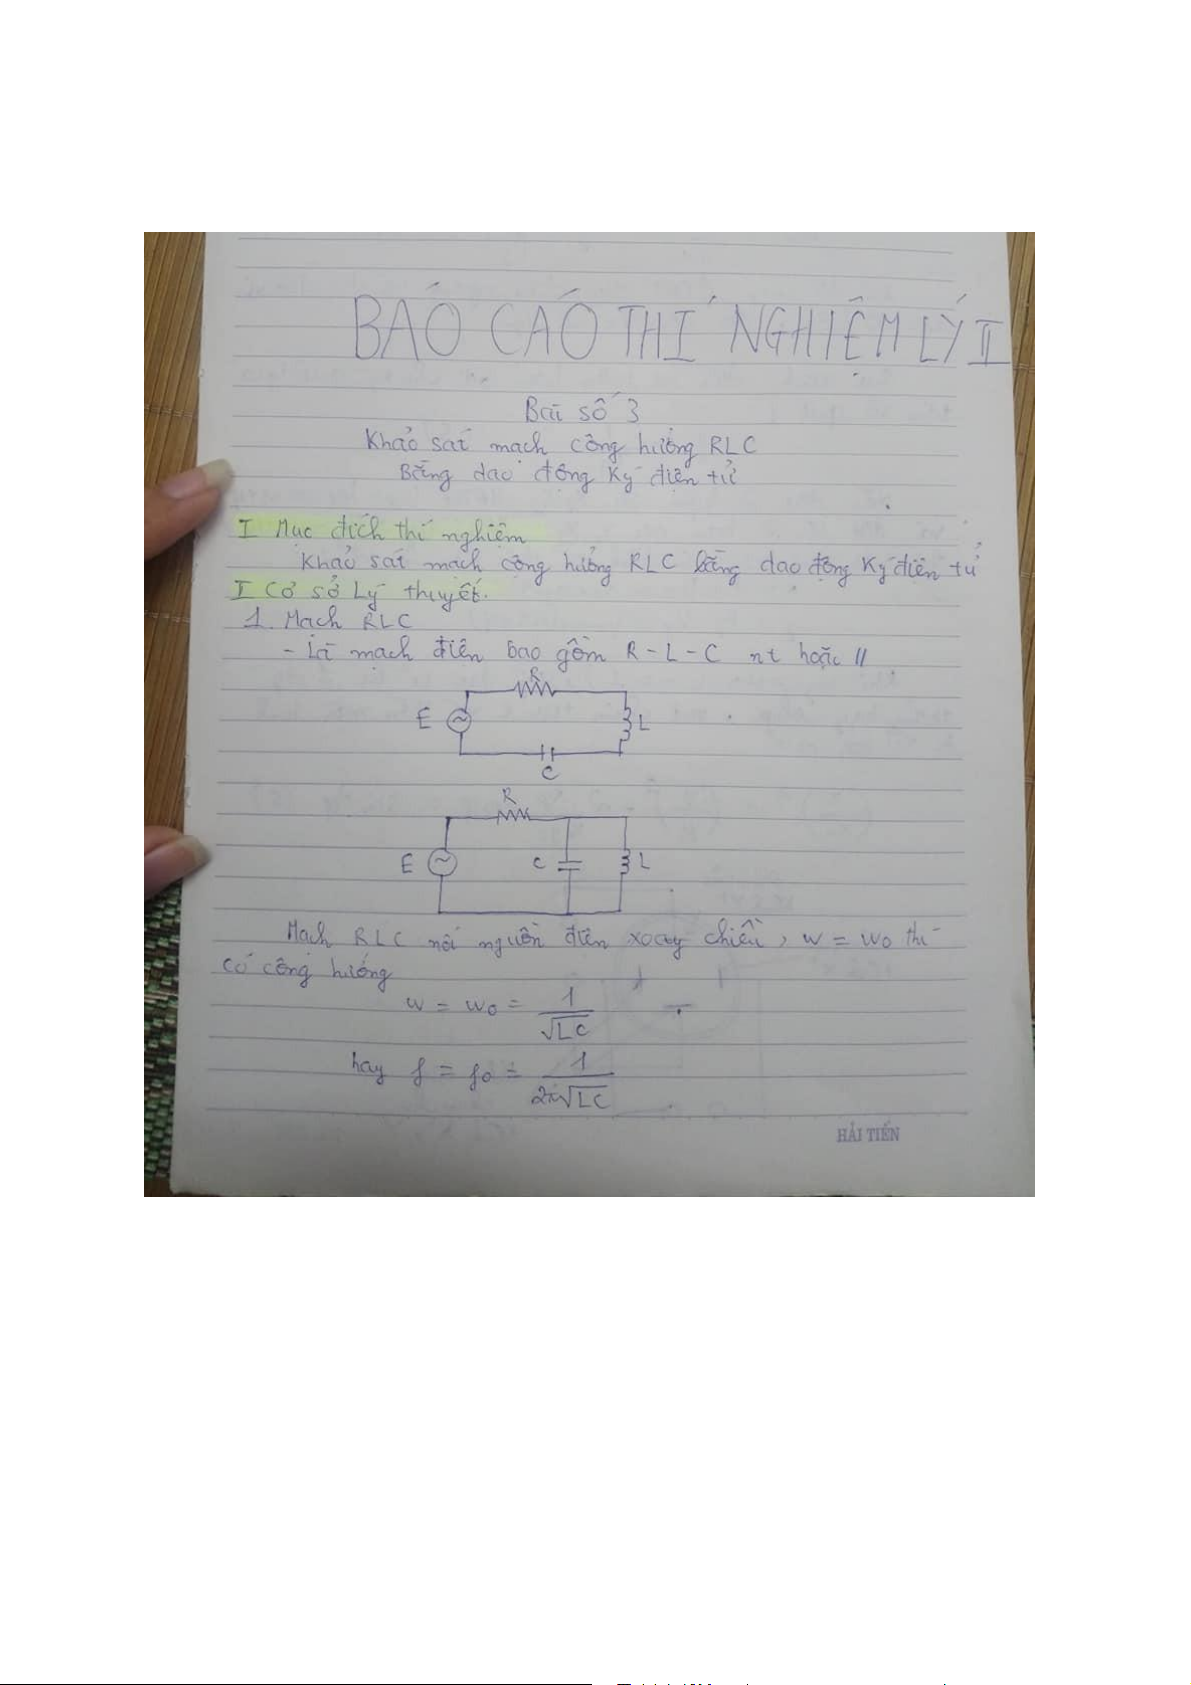 BÁO CÁO THÍ NGHIỆM LÝ II
Bài số 3
Khảo sát mạch cộng hưởng RLC
Bằng dao động Ký điện tử
I Mục đích thí nghiệm
Khảo sát mạch cộng hưởng RLC bằng dao động Ký điện tử
I Cơ sở Lý thuyết.
1. Mạch RLC
- Là mạch điện bao gồm R - L - C nt hoặc //
R
E
L
C
R
E
C
L
Mạch RLC nối nguồn điện xoay chiều, w = w0 thì
có cộng hưởng
w = w0 = 1/√LC
hay f = f0 = 1/2π√LC
HẢI TIẾN